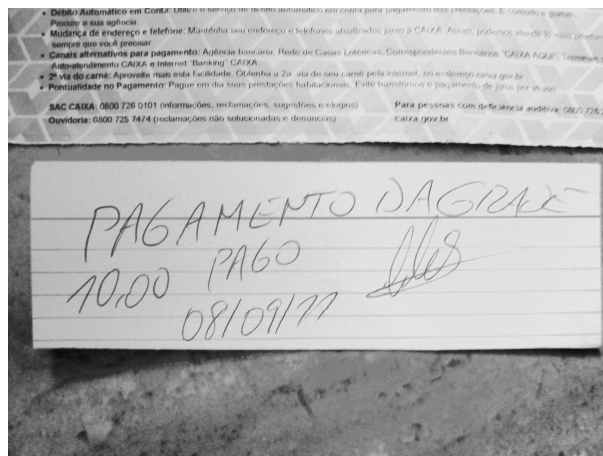 • Débito Automático em Conta: Utilize o serviço de débito automático em conta para pagamento das prestações. É cômodo e
Procure a sua agência.
• Mudança de endereço e telefone: Mantenha seu endereço e telefones atualizados junto à CAIXA. Assim, podemos atendê-lo mais
sempre que você precisar.
• Canais alternativos para pagamento: Agência bancária, Rede de Casas Lotéricas, Correspondentes Bancários "CAIXA AQUI",
Auto-atendimento CAIXA e Internet "Banking" CAIXA.
• 2ª via do carnê: Aproveite mais esta facilidade. Obtenha a 2a. via de seu carnê pela internet, no endereço caixa.gov.br
• Pontualidade no Pagamento: Pague em dia suas prestações habitacionais. Evite transtornos e pagamento de juros por atraso.
SAC CAIXA: 0800 726 0101 (informações, reclamações, sugestões e elogios)
Para pessoas com deficiência auditiva: 0800 726
Ouvidoria: 0800 725 7474 (reclamações não solucionadas e denúncias)
caixa.gov.br
PAGAMENTO DA GRADE
10,00 PAGO
08/09/11